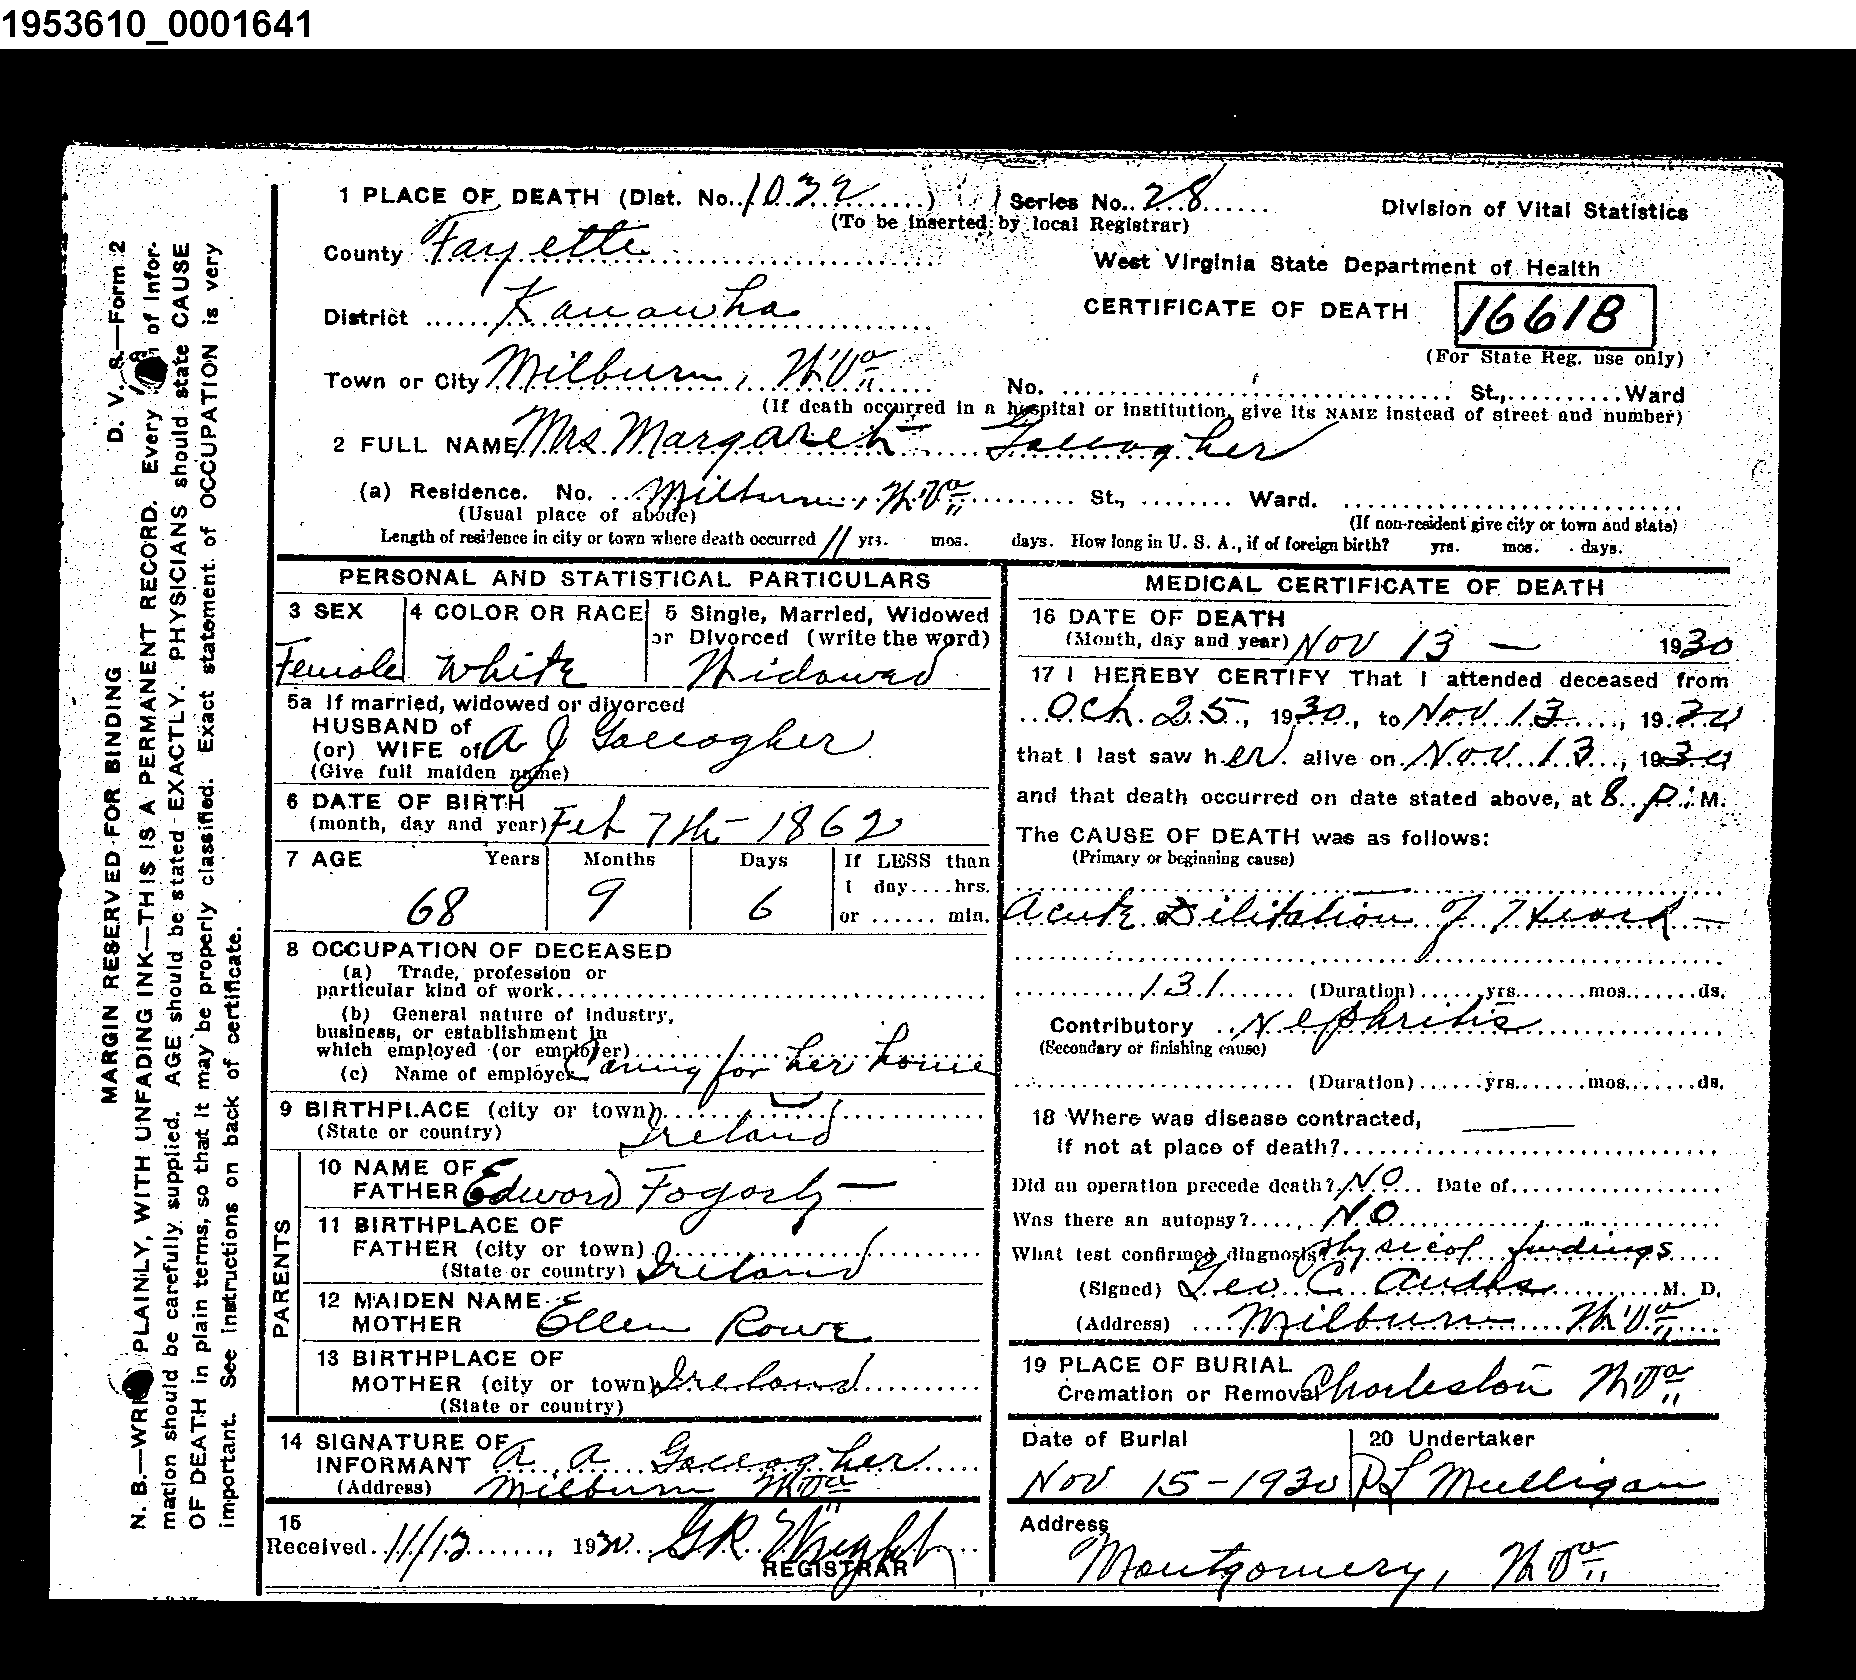 1953610_0001641
1 PLACE OF DEATH (Dist. No. 1032 ) Series No. 28
(To be inserted by local Registrar)
Division of Vital Statistics
County Fayette
West Virginia State Department of Health
District Kanawha
CERTIFICATE OF DEATH 16618
(For State Reg. use only)
Town or City Milburn, W.Va
No. St., Ward
(If death occurred in a hospital or institution, give its NAME instead of street and number)
2 FULL NAME Mrs Margaret Gallagher
(a) Residence. No. Milburn, W.Va St., Ward.
(Usual place of abode)
(If non-resident give city or town and state)
Length of residence in city or town where death occurred 11 yrs. mos. days. How long in U. S. A., if of foreign birth? yrs. mos. days.
PERSONAL AND STATISTICAL PARTICULARS
3 SEX
Female
4 COLOR OR RACE
White
5 Single, Married, Widowed
or Divorced (write the word)
Widowed
5a If married, widowed or divorced
HUSBAND of
(or) WIFE of A J Gallagher
(Give full maiden name)
6 DATE OF BIRTH
(month, day and year) Feb 7th 1862
7 AGE Years Months Days If LESS than
1 day....hrs.
68 9 6 or ...... min.
8 OCCUPATION OF DECEASED
(a) Trade, profession or
particular kind of work
(b) General nature of industry,
business, or establishment in
which employed (or employer)
(c) Name of employer Caring for her home
9 BIRTHPLACE (city or town)
(State or country) Ireland
PARENTS
10 NAME OF
FATHER Edward Fogarty
11 BIRTHPLACE OF
FATHER (city or town)
(State or country) Ireland
12 MAIDEN NAME
MOTHER Ellen Rowe
13 BIRTHPLACE OF
MOTHER (city or town) Ireland
(State or country)
14 SIGNATURE OF
INFORMANT A. A. Gallagher
(Address) Milburn W Va
15
Received 11/13, 1930 GR Wright
REGISTRAR
MEDICAL CERTIFICATE OF DEATH
16 DATE OF DEATH
(Month, day and year) Nov 13 — 1930
17 I HEREBY CERTIFY That I attended deceased from
Oct. 25, 1930, to Nov 13, 1930
that I last saw her alive on Nov. 13, 1930
and that death occurred on date stated above, at 8 P. M.
The CAUSE OF DEATH was as follows:
(Primary or beginning cause)
Acute Dilitation of Heart —
131 (Duration) yrs. mos. ds.
Contributory Nephritis
(Secondary or finishing cause)
(Duration) yrs. mos. ds.
18 Where was disease contracted,
if not at place of death?
Did an operation precede death? NO Date of
Was there an autopsy? NO
What test confirmed diagnosis? Physical findings
(Signed) Geo C. M. D.
(Address) Milburn W.Va
19 PLACE OF BURIAL
Cremation or Removal Charleston W Va
Date of Burial
Nov 15 - 1930
20 Undertaker
PL Mulligan
Address
Montgomery, W Va
MARGIN RESERVED FOR BINDING D. V. S.—Form 2
N. B.—WRITE PLAINLY, WITH UNFADING INK—THIS IS A PERMANENT RECORD. Every of infor-
mation should be carefully supplied. AGE should be stated EXACTLY. PHYSICIANS should state CAUSE
OF DEATH in plain terms, so that it may be properly classified. Exact statement of OCCUPATION is very
important. See instructions on back of certificate.